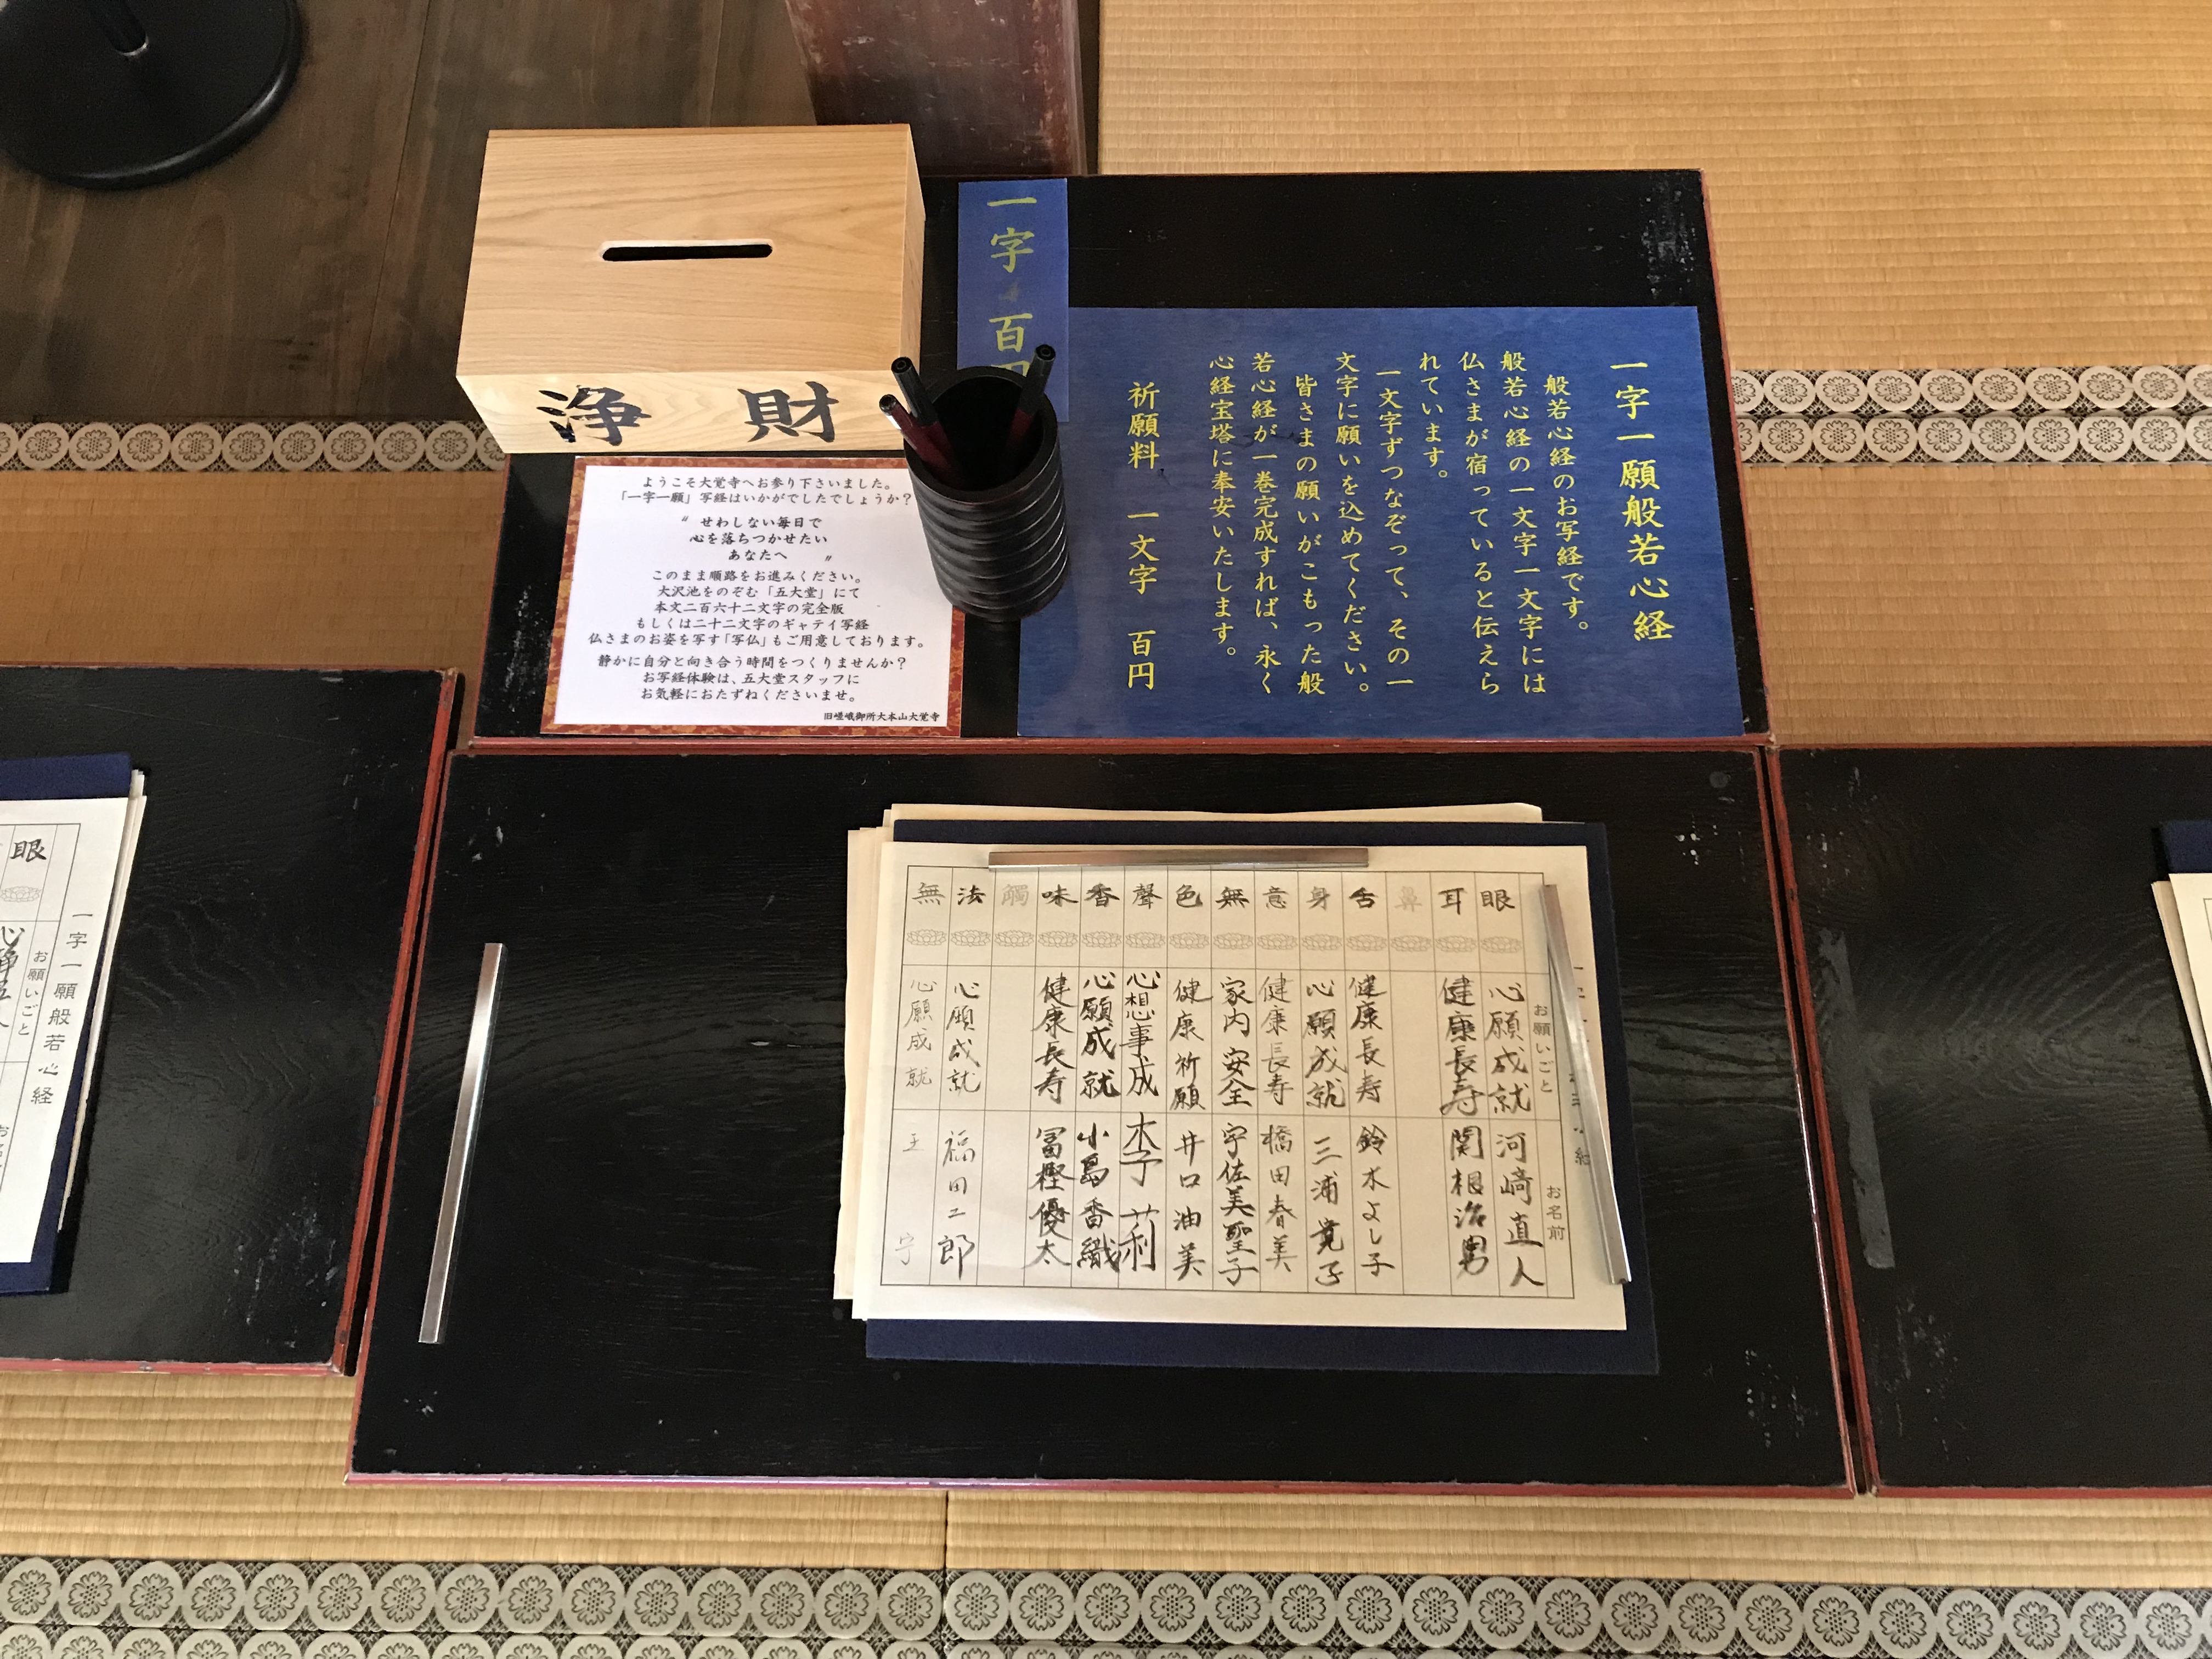 浄 財
一字
百円
一字一願般若心経
般若心経のお写経です。
般若心経の一文字一文字には
仏さまが宿っていると伝えら
れています。
一文字ずつなぞって、その一
文字に願いを込めてください。
皆さまの願いがこもった般
若心経が一巻完成すれば、永く
心経宝塔に奉安いたします。
祈願料 一文字 百円
ようこそ大覚寺へお参り下さいました。
「一字一願」写経はいかがでしたでしょうか?
〝せわしない毎日で
心を落ちつかせたい
あなたへ 〟
このまま順路をお進みください。
大沢池をのぞむ「五大堂」にて
本文二百六十二文字の完全版
もしくは二十二文字のギャテイ写経
仏さまのお姿を写す「写仏」もご用意しております。
静かに自分と向き合う時間をつくりませんか?
お写経体験は、五大堂スタッフに
お気軽におたずねくださいませ。
旧嵯峨御所大本山大覚寺
お願いごと お名前
眼 心願成就 河崎直人
耳 健康長寿 関根治男
鼻
舌 健康長寿 鈴木よし子
身 心願成就 三浦寛子
意 健康長寿 橋田春美
無 家内安全 宇佐美聖子
色 健康祈願 井口油美
聲 心想事成 李 莉
香 心願成就 小島香織
味 健康長寿 冨樫優太
觸
法 心願成就 福田二郎
無 心願成就 王 宇
一字一願般若心経
お願いごと
眼